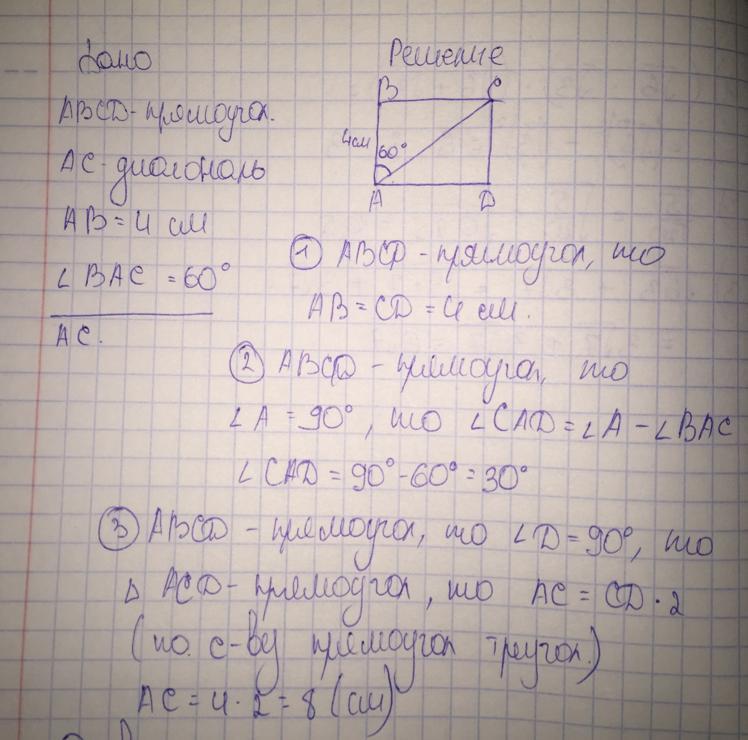 Дано
ABCD - прямоугол.
AC - диагональ
AB = 4 см
∠BAC = 60°
AC.
Решение
B C
4см 60°
A D
① ABCD - прямоугол, то
AB = CD = 4 см.
② ABCD - прямоугол, то
∠A = 90°, то ∠CAD = ∠A - ∠BAC
∠CAD = 90° - 60° = 30°
③ ABCD - прямоугол, то ∠D = 90°, то
Δ ACD - прямоугол, то AC = CD · 2
(по с-ву прямоугол треугол.)
AC = 4 · 2 = 8 (см)